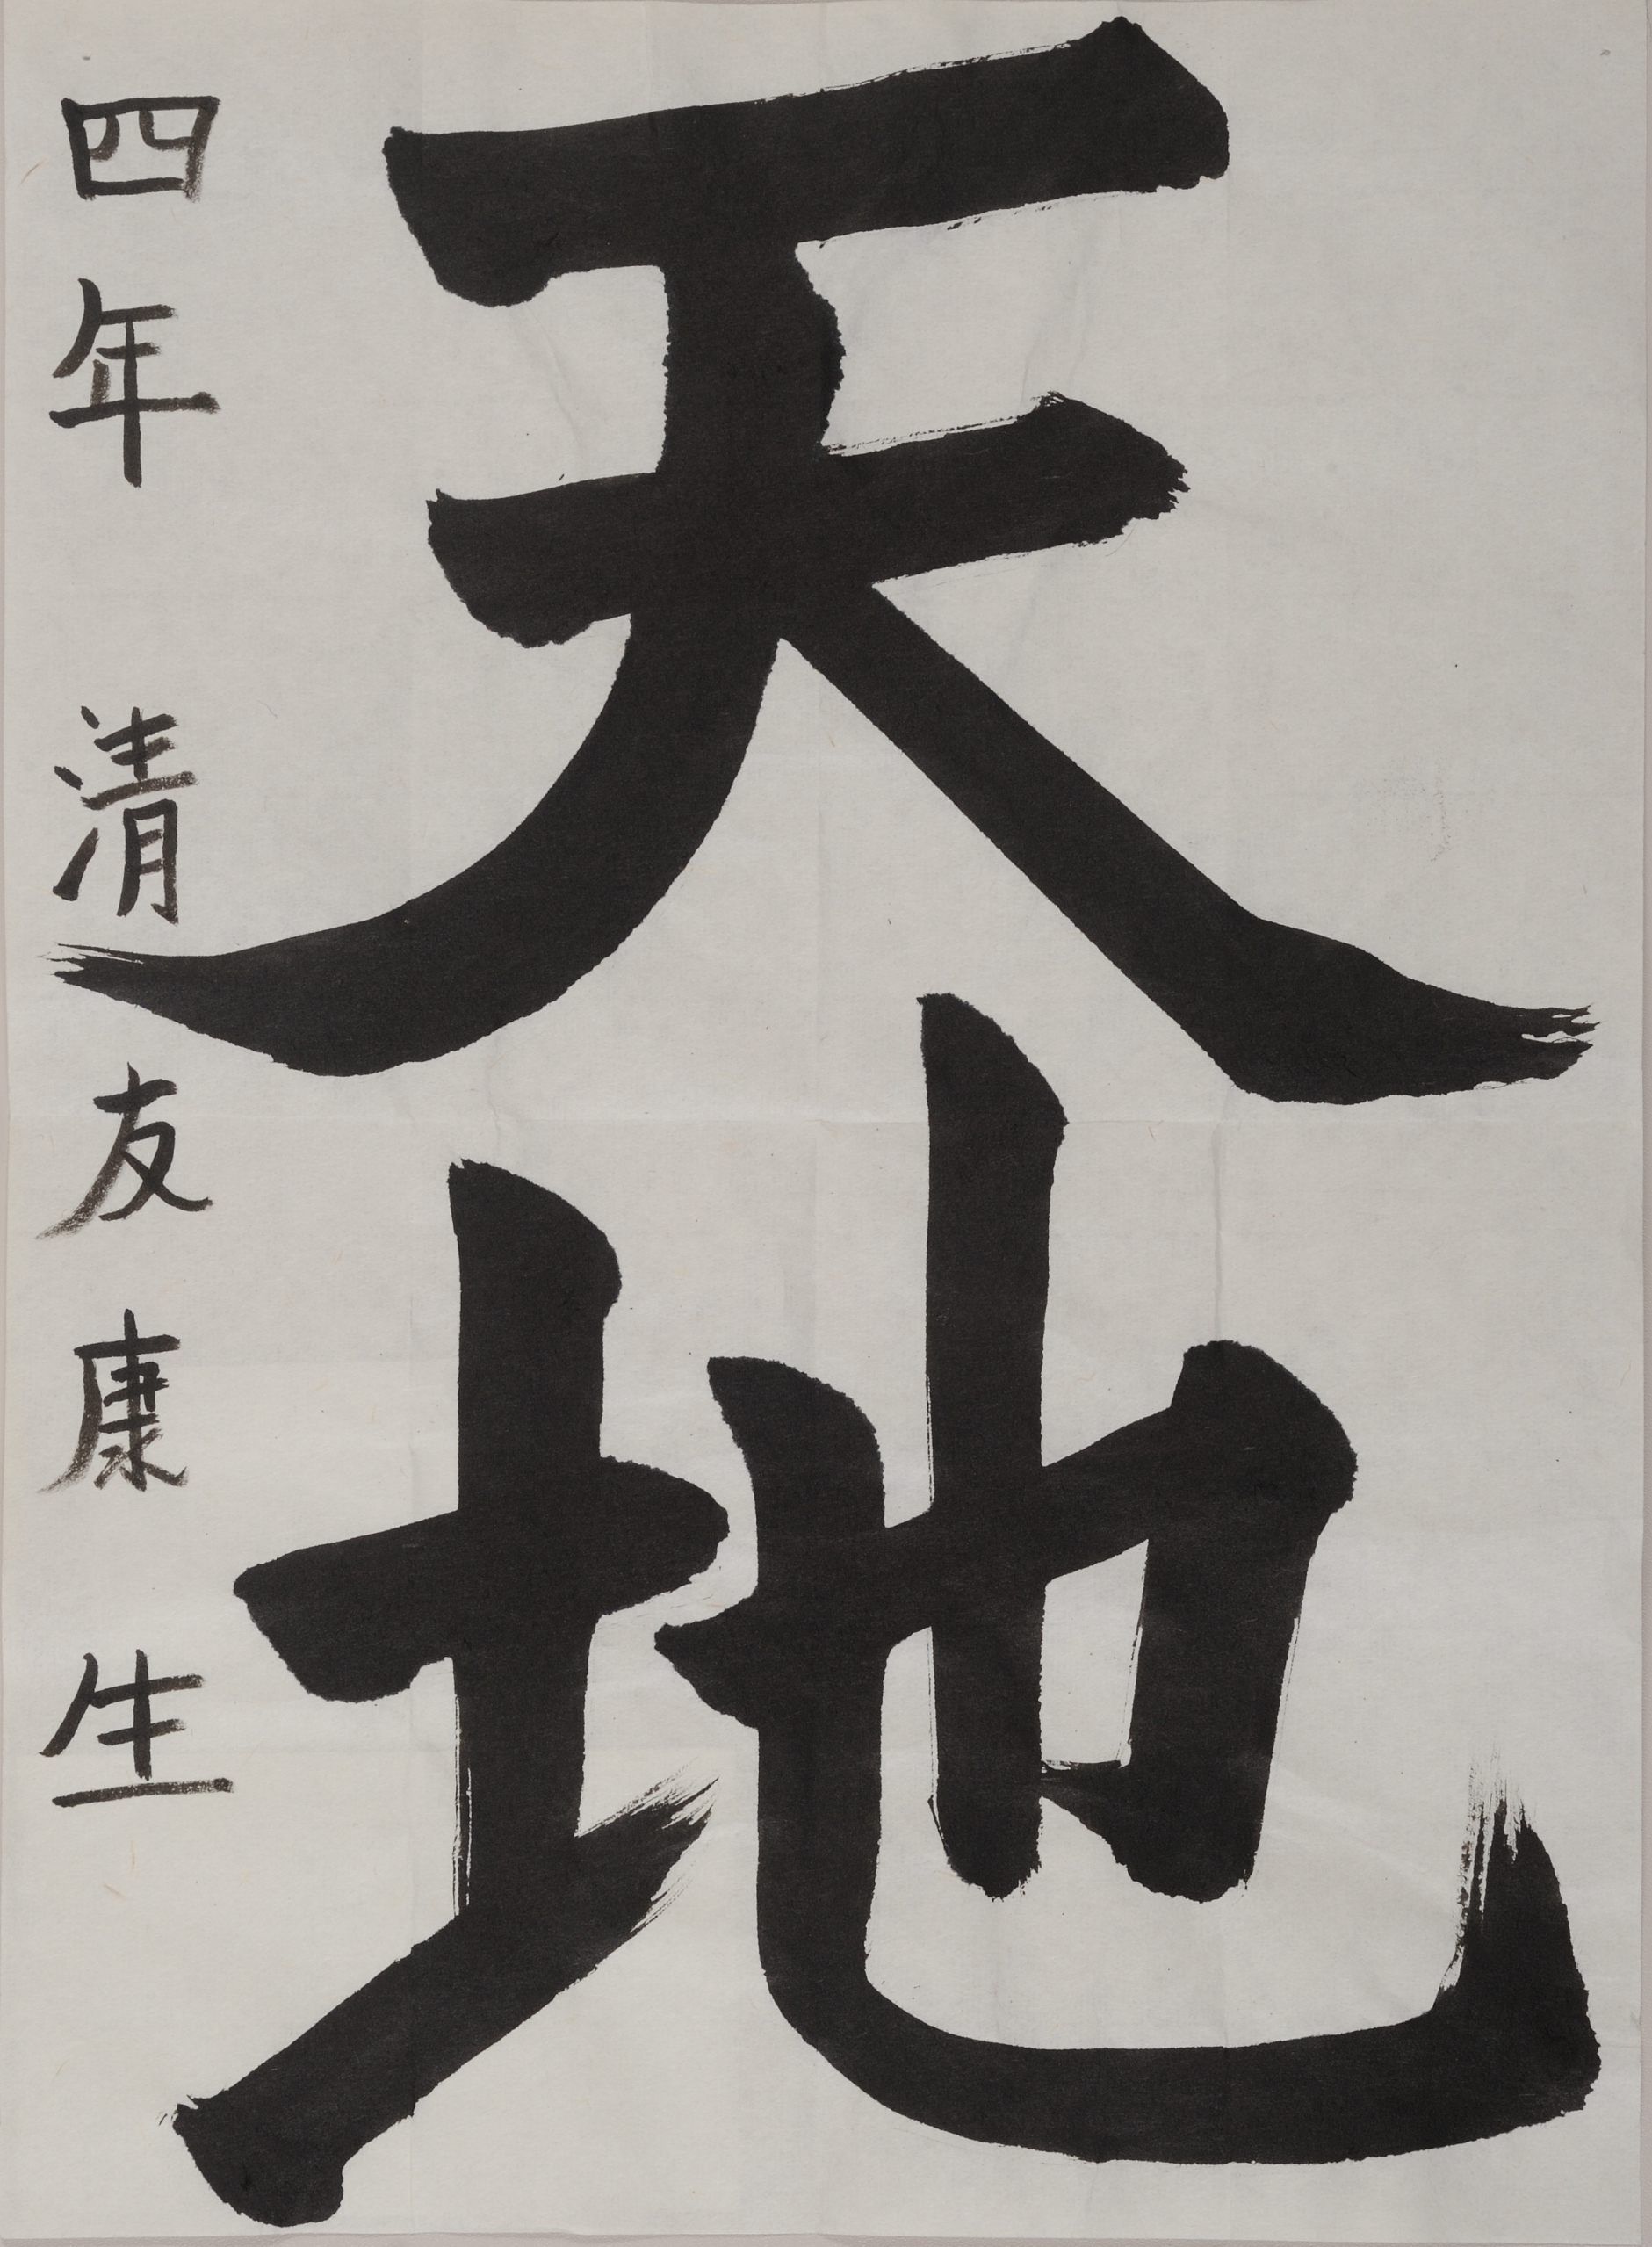 天地
四年 清友康生